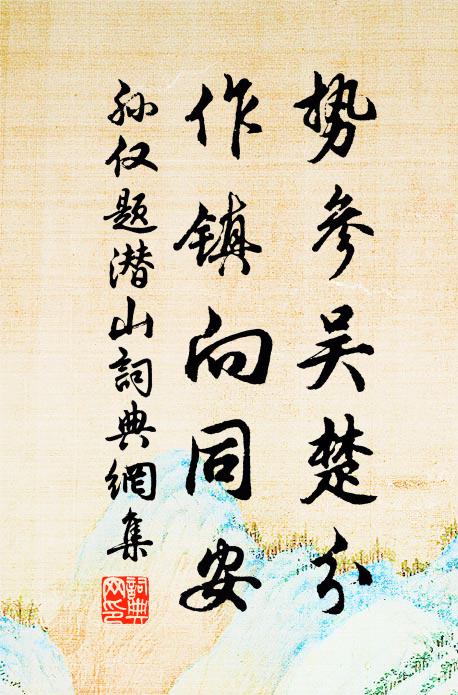 势参吴楚分
作镇向同安
孙仅题潜山詞典網集
詞典网印